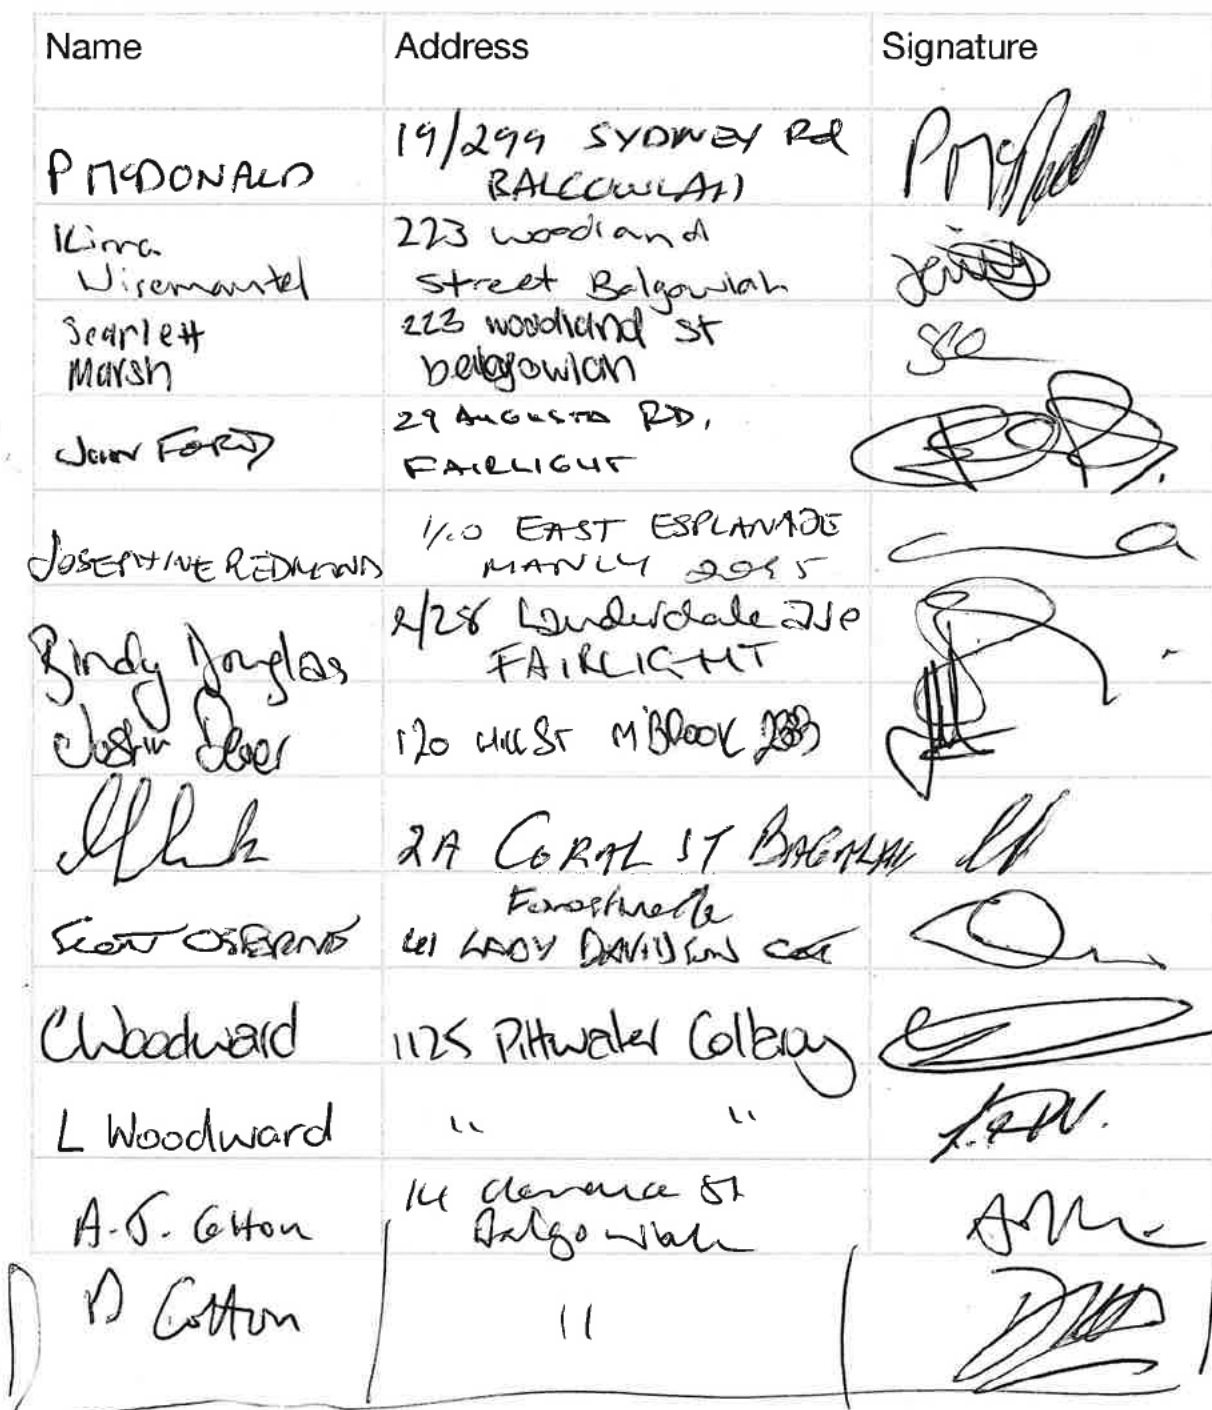 Name Address Signature
P McDONALD
19/299 SYDNEY Rd
BALGOWLAH
Kirra
Wisemantel
223 woodland
street Balgowlah
Scarlett
Marsh
223 woodland st
balgowlah
John FORD
29 AUGUSTA RD,
FAIRLIGHT
JOSEPHINE REDMOND
EAST ESPLANADE
MANLY 2095
Bindy Douglas
2/28 Lauderdale ave
FAIRLIGHT
Justin
120 Hill St M'BROOK
2A CORAL ST
SCOTT OSBORNE
Forestville
41 LADY DAVIDSON CCT
C Woodward
1125 Pittwater Collaroy
L Woodward
" "
A.J. Cotton
14 clarence St
Balgowlah
D Cotton
"